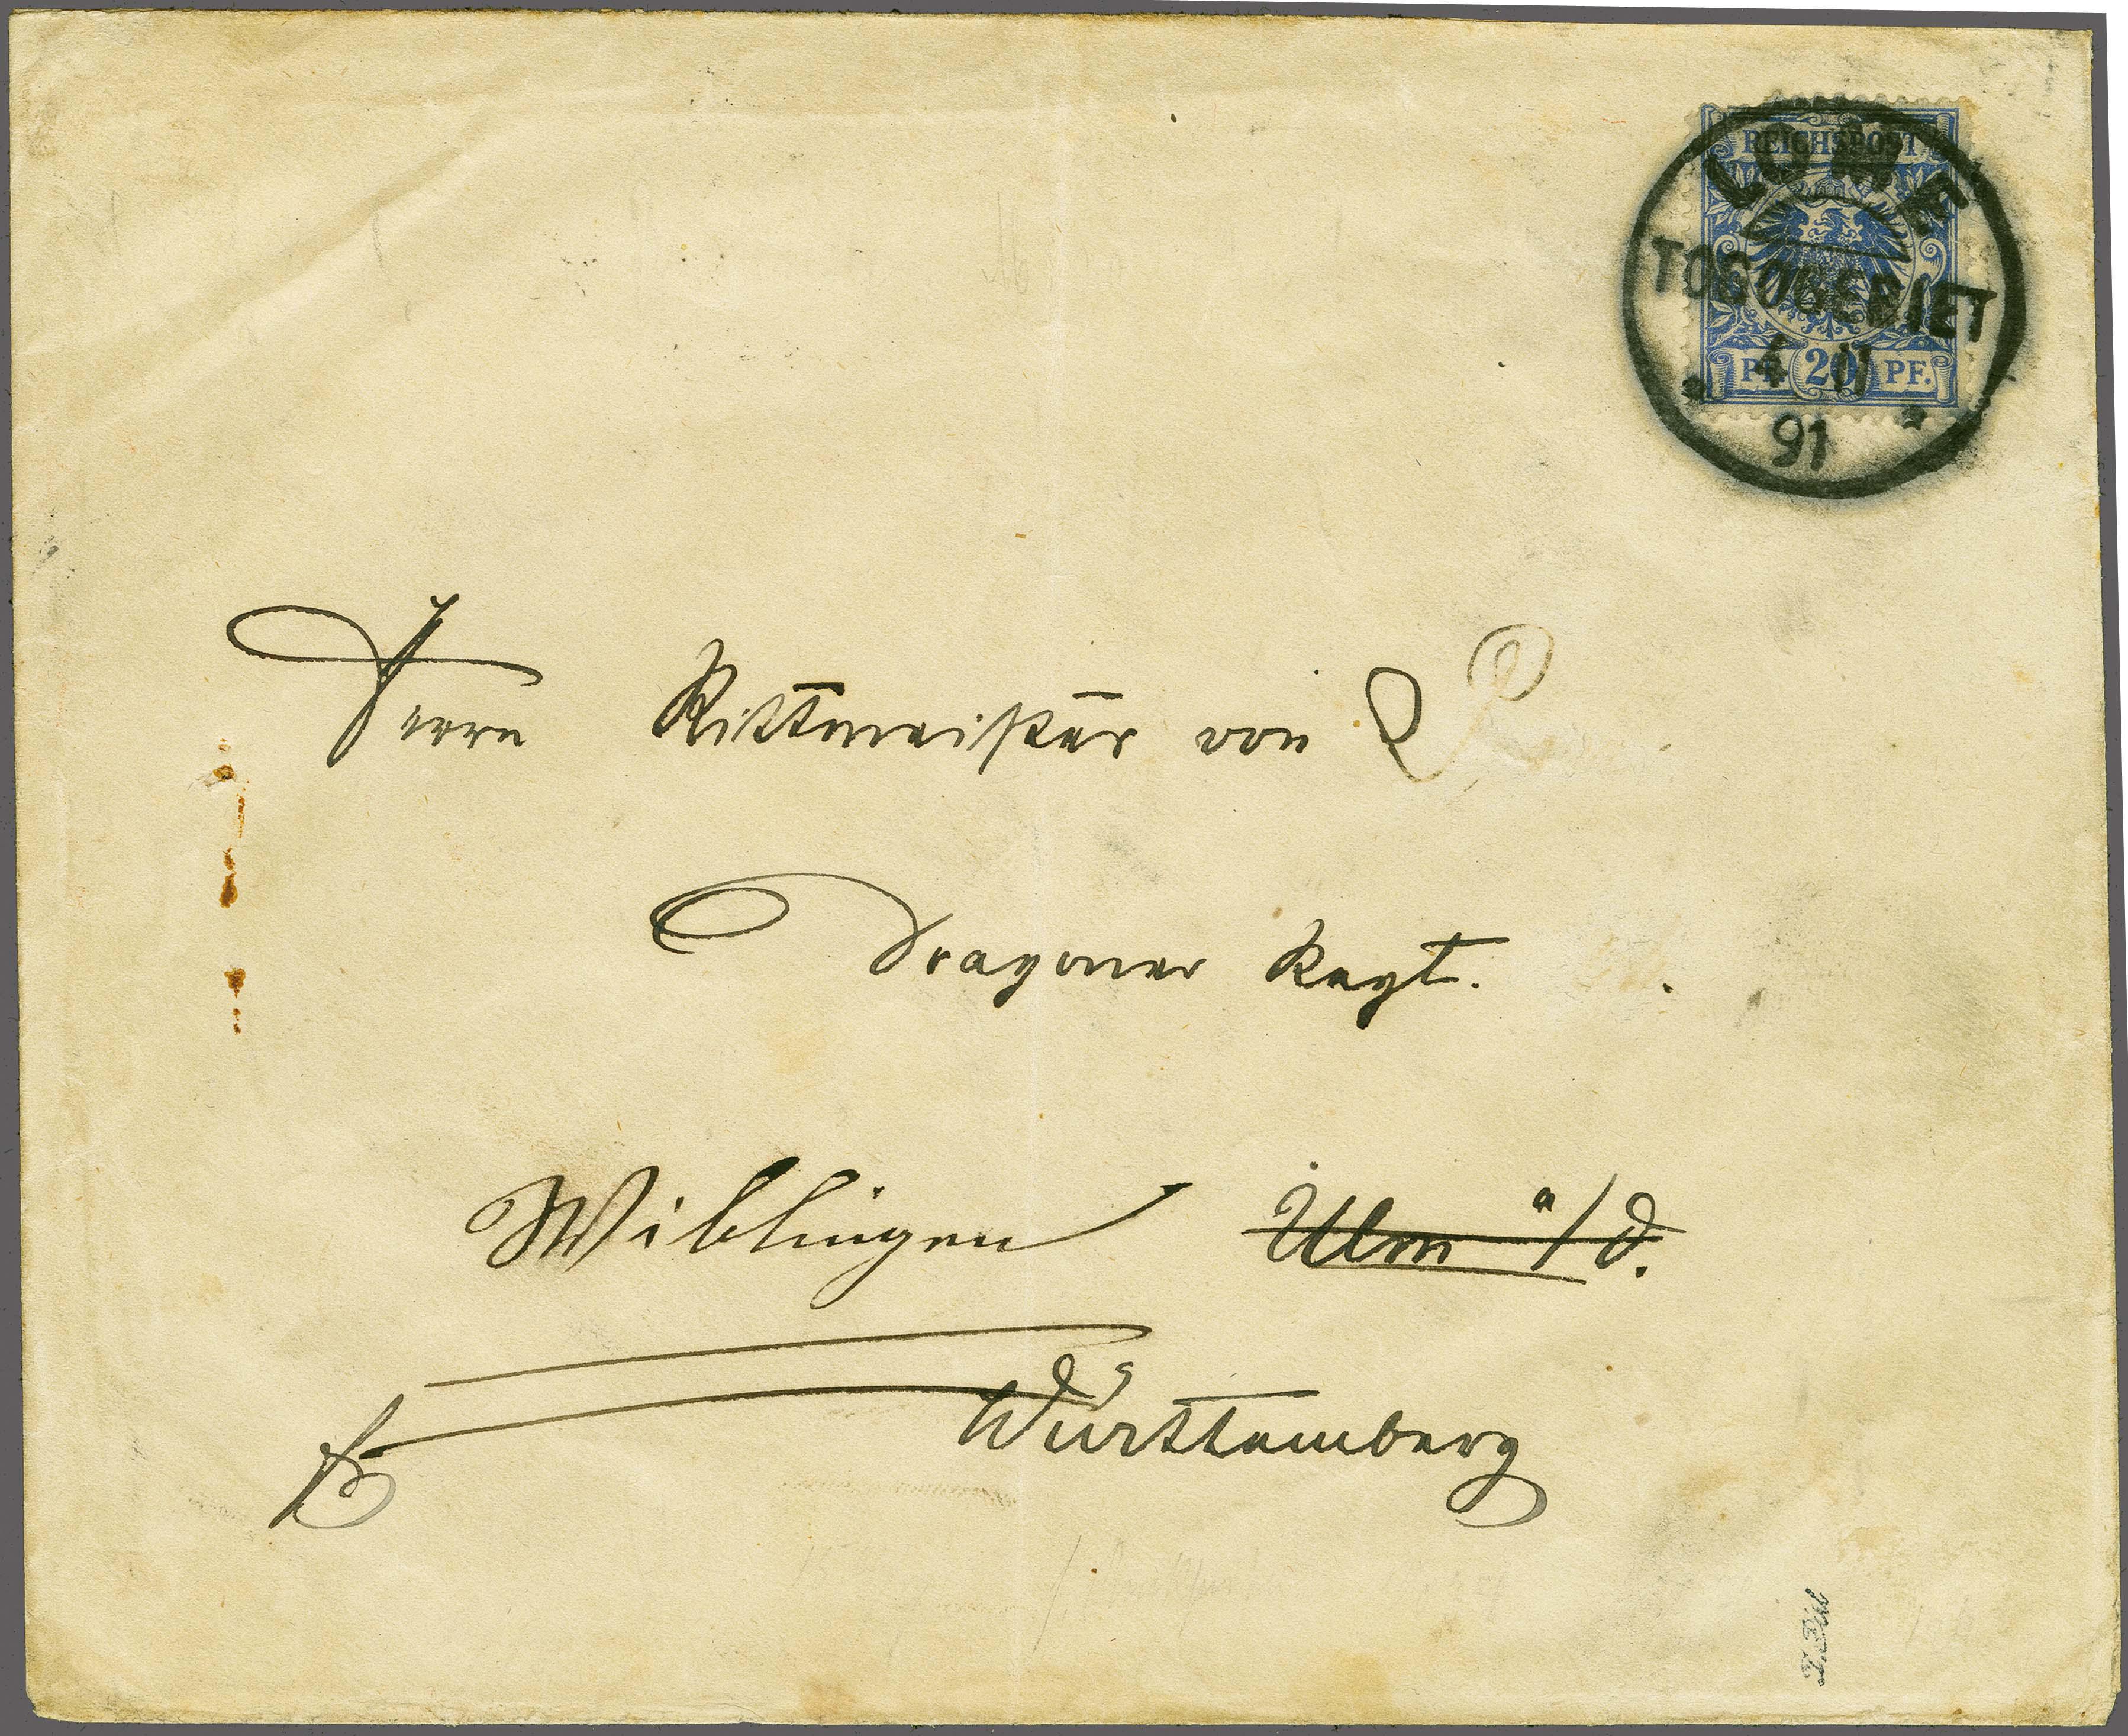 REICHSPOST
PF. 20 PF.
LOME
TOGOGEBIET
91
Herrn Rittmeister von
Dragoner Regt.
Wiblingen Ulm a/D.
Württemberg